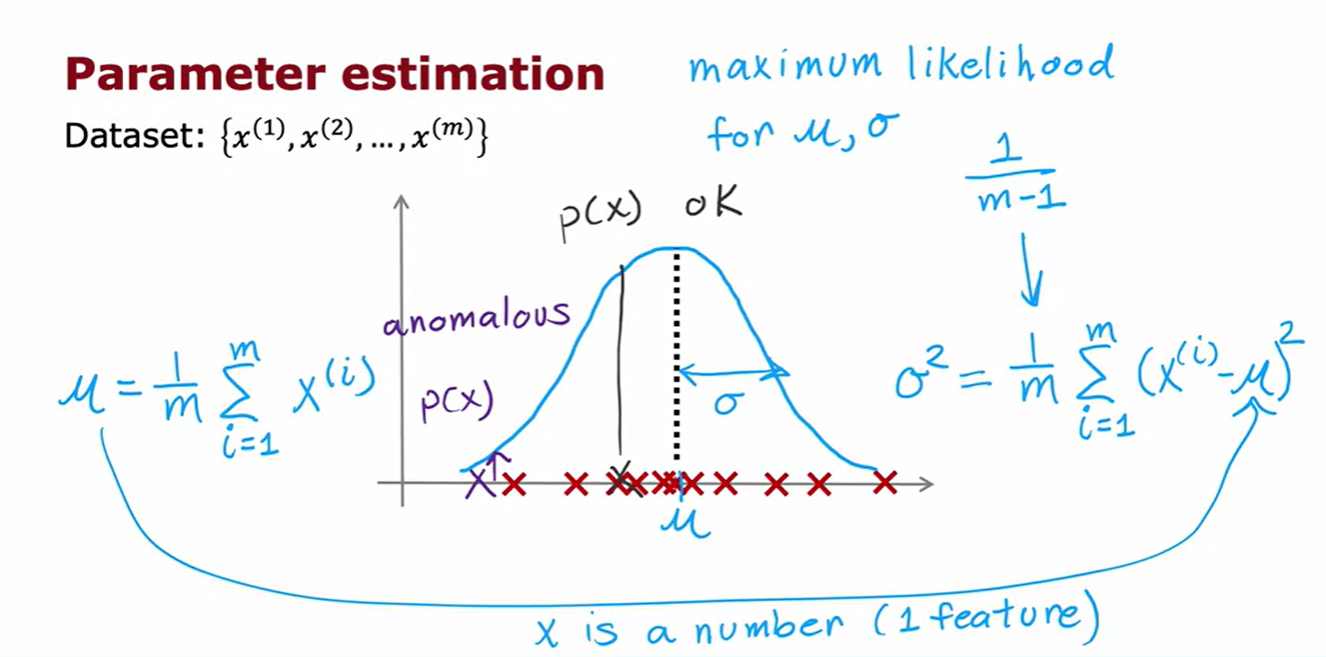 Parameter estimation
Dataset: {x⁽¹⁾, x⁽²⁾, ..., x⁽ᵐ⁾}
maximum likelihood
for μ, σ
1/(m-1)
p(x) OK
anomalous
p(x)
μ = 1/m ∑_{i=1}^{m} x⁽ⁱ⁾
σ
σ² = 1/m ∑_{i=1}^{m} (x⁽ⁱ⁾-μ)²
μ
x is a number (1 feature)